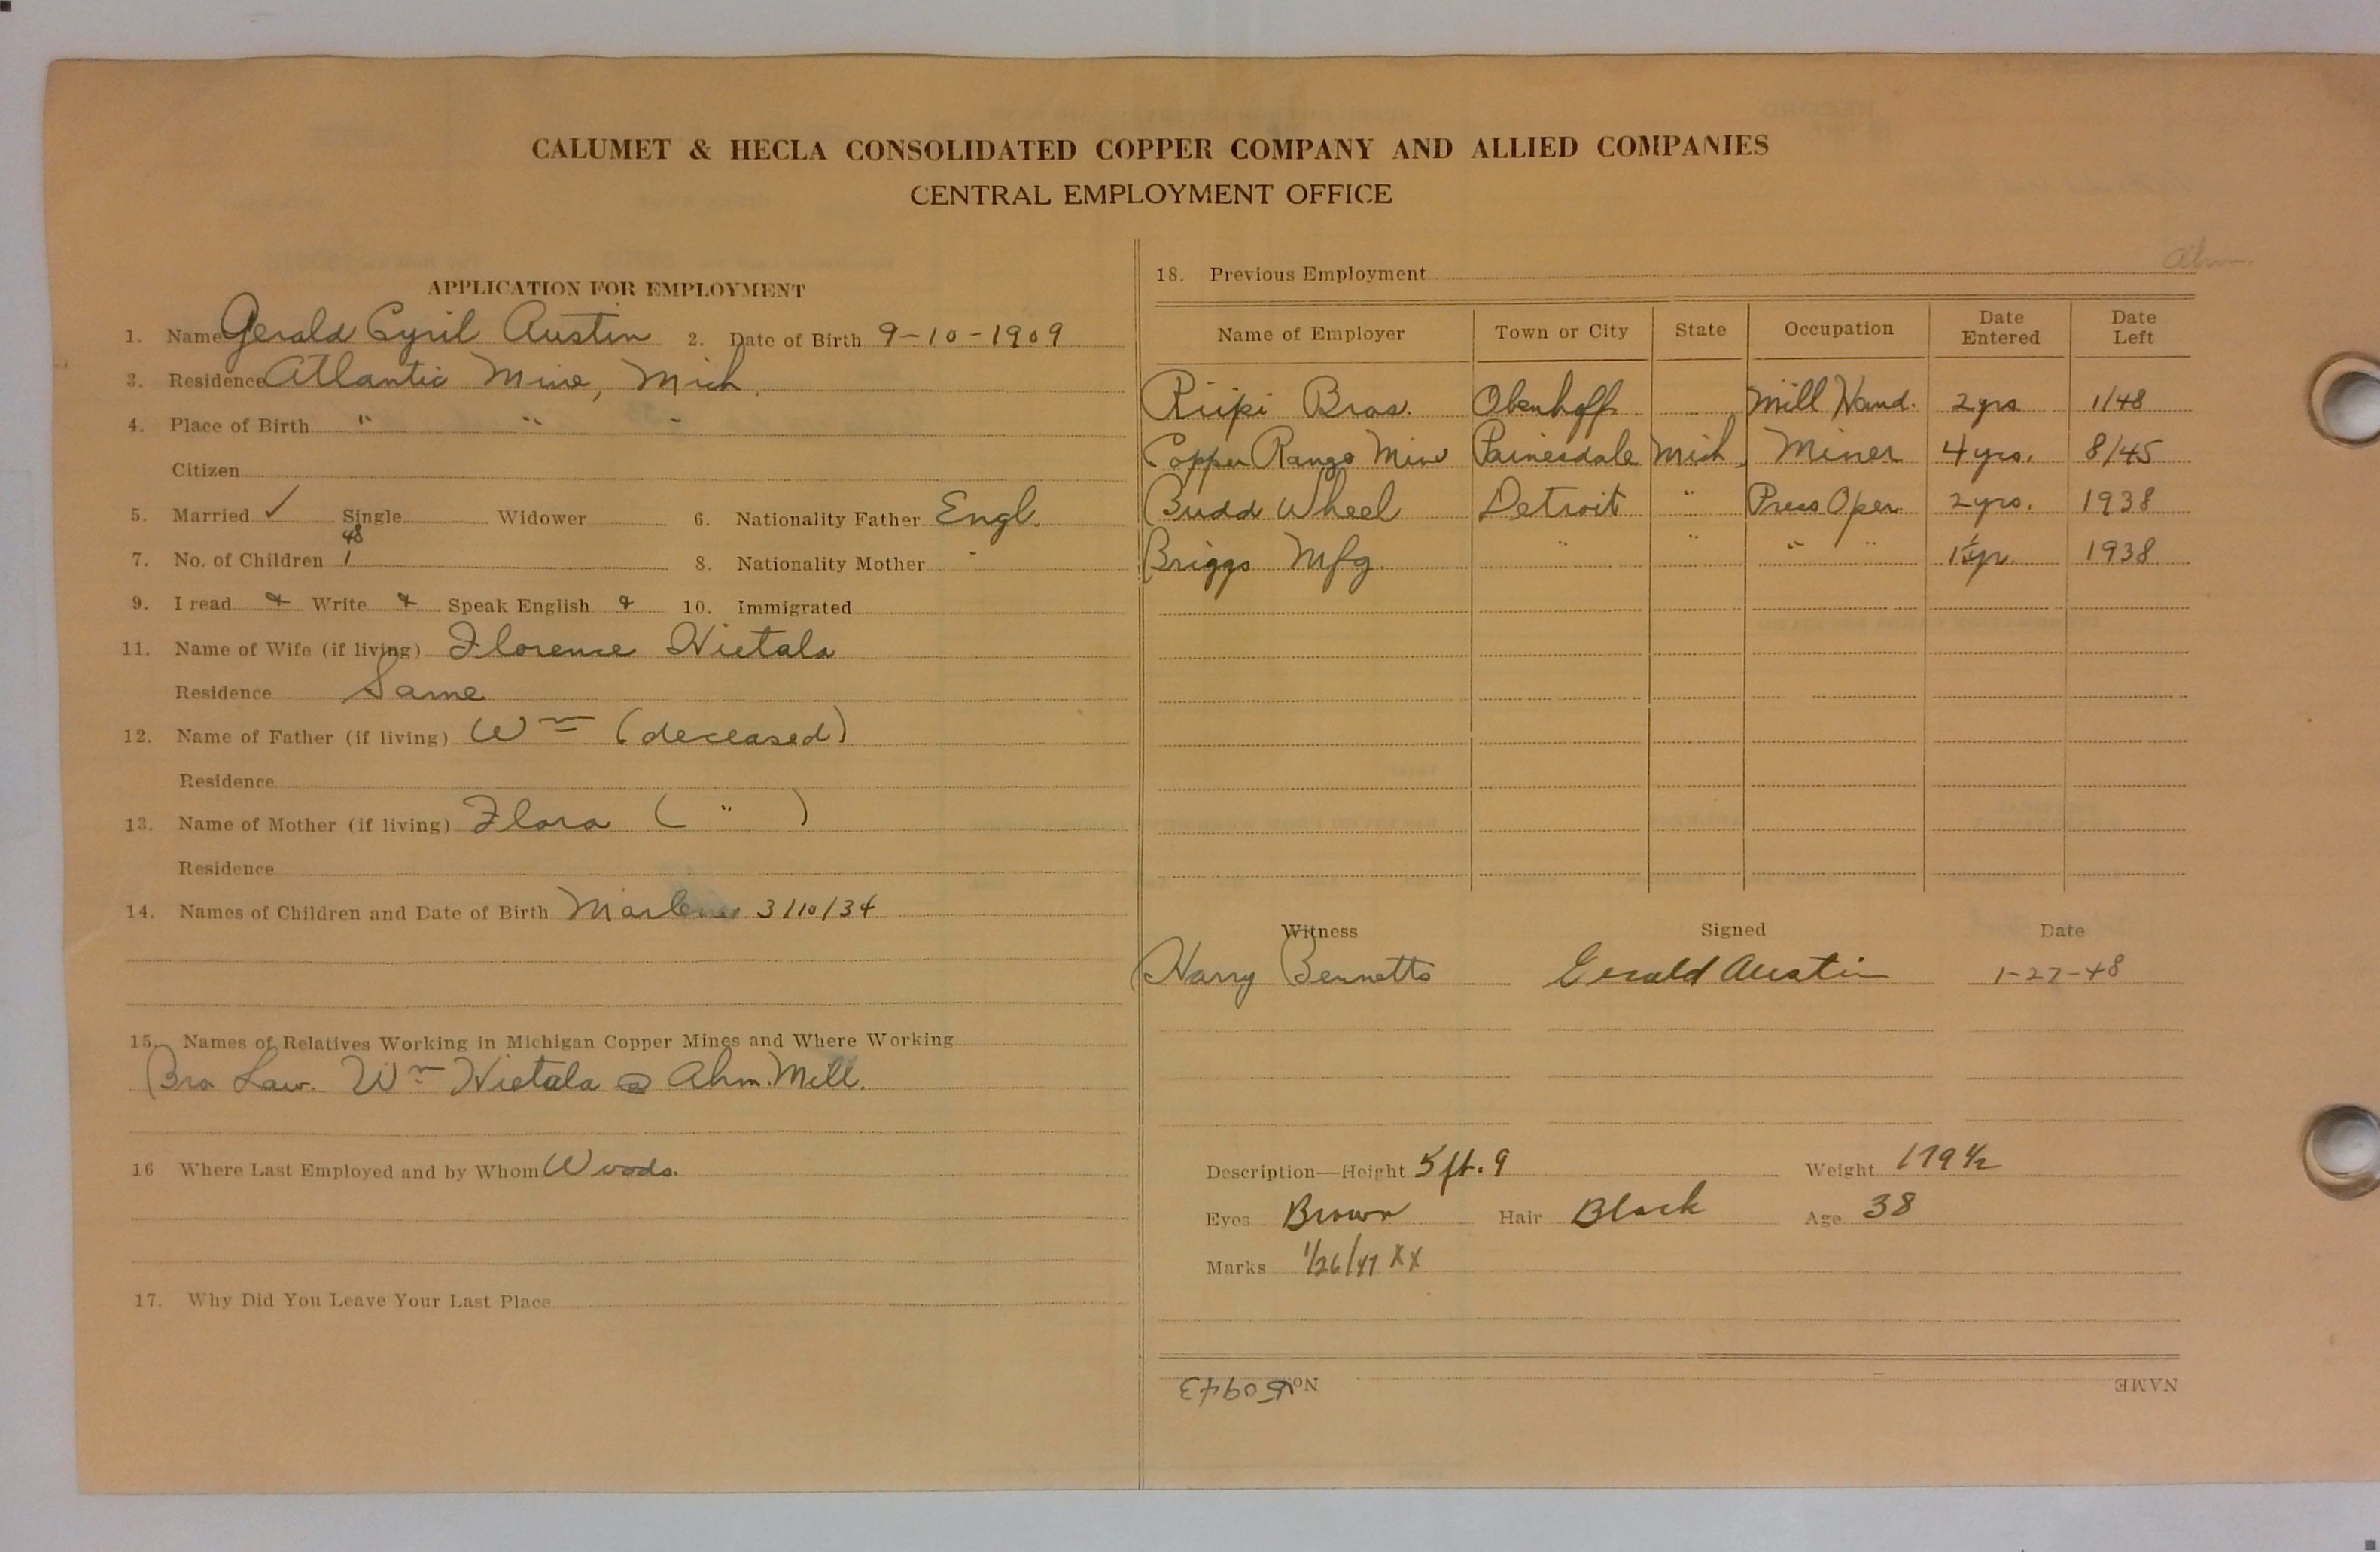 CALUMET & HECLA CONSOLIDATED COPPER COMPANY AND ALLIED COMPANIES
CENTRAL EMPLOYMENT OFFICE
APPLICATION FOR EMPLOYMENT
1. Name Gerald Cyril Austin 2. Date of Birth 9-10-1909
3. Residence Atlantic Mine, Mich.
4. Place of Birth " " "
Citizen
5. Married ✓ Single Widower 6. Nationality Father Engl.
48
7. No. of Children 1 8. Nationality Mother "
9. I read Write Speak English 10. Immigrated
11. Name of Wife (if living) Florence Hietala
Residence Same
12. Name of Father (if living) Wm (deceased)
Residence
13. Name of Mother (if living) Flora ( " )
Residence
14. Names of Children and Date of Birth Marlene 3/10/34
15. Names of Relatives Working in Michigan Copper Mines and Where Working
Bro Law. Wm Hietala @ Ahm. Mill.
16 Where Last Employed and by Whom Woods.
17. Why Did You Leave Your Last Place
Ahm.
18. Previous Employment
Name of Employer Town or City State Occupation Date Entered Date Left
Riipi Bros. Obenhoff Mill Hand. 2 yrs 1/48
Copper Range Mine Painesdale Mich. Miner 4 yrs. 8/45
Budd Wheel Detroit " Press Oper. 2 yrs. 1938
Briggs Mfg. " " " " 1938
Witness Signed Date
Harry Bennetts Gerald Austin 1-27-48
Description—Height 5 ft. 9 Weight 179 1/2
Eyes Brown Hair Black Age 38
Marks 1/26/47 XX
No. 50943 NAME